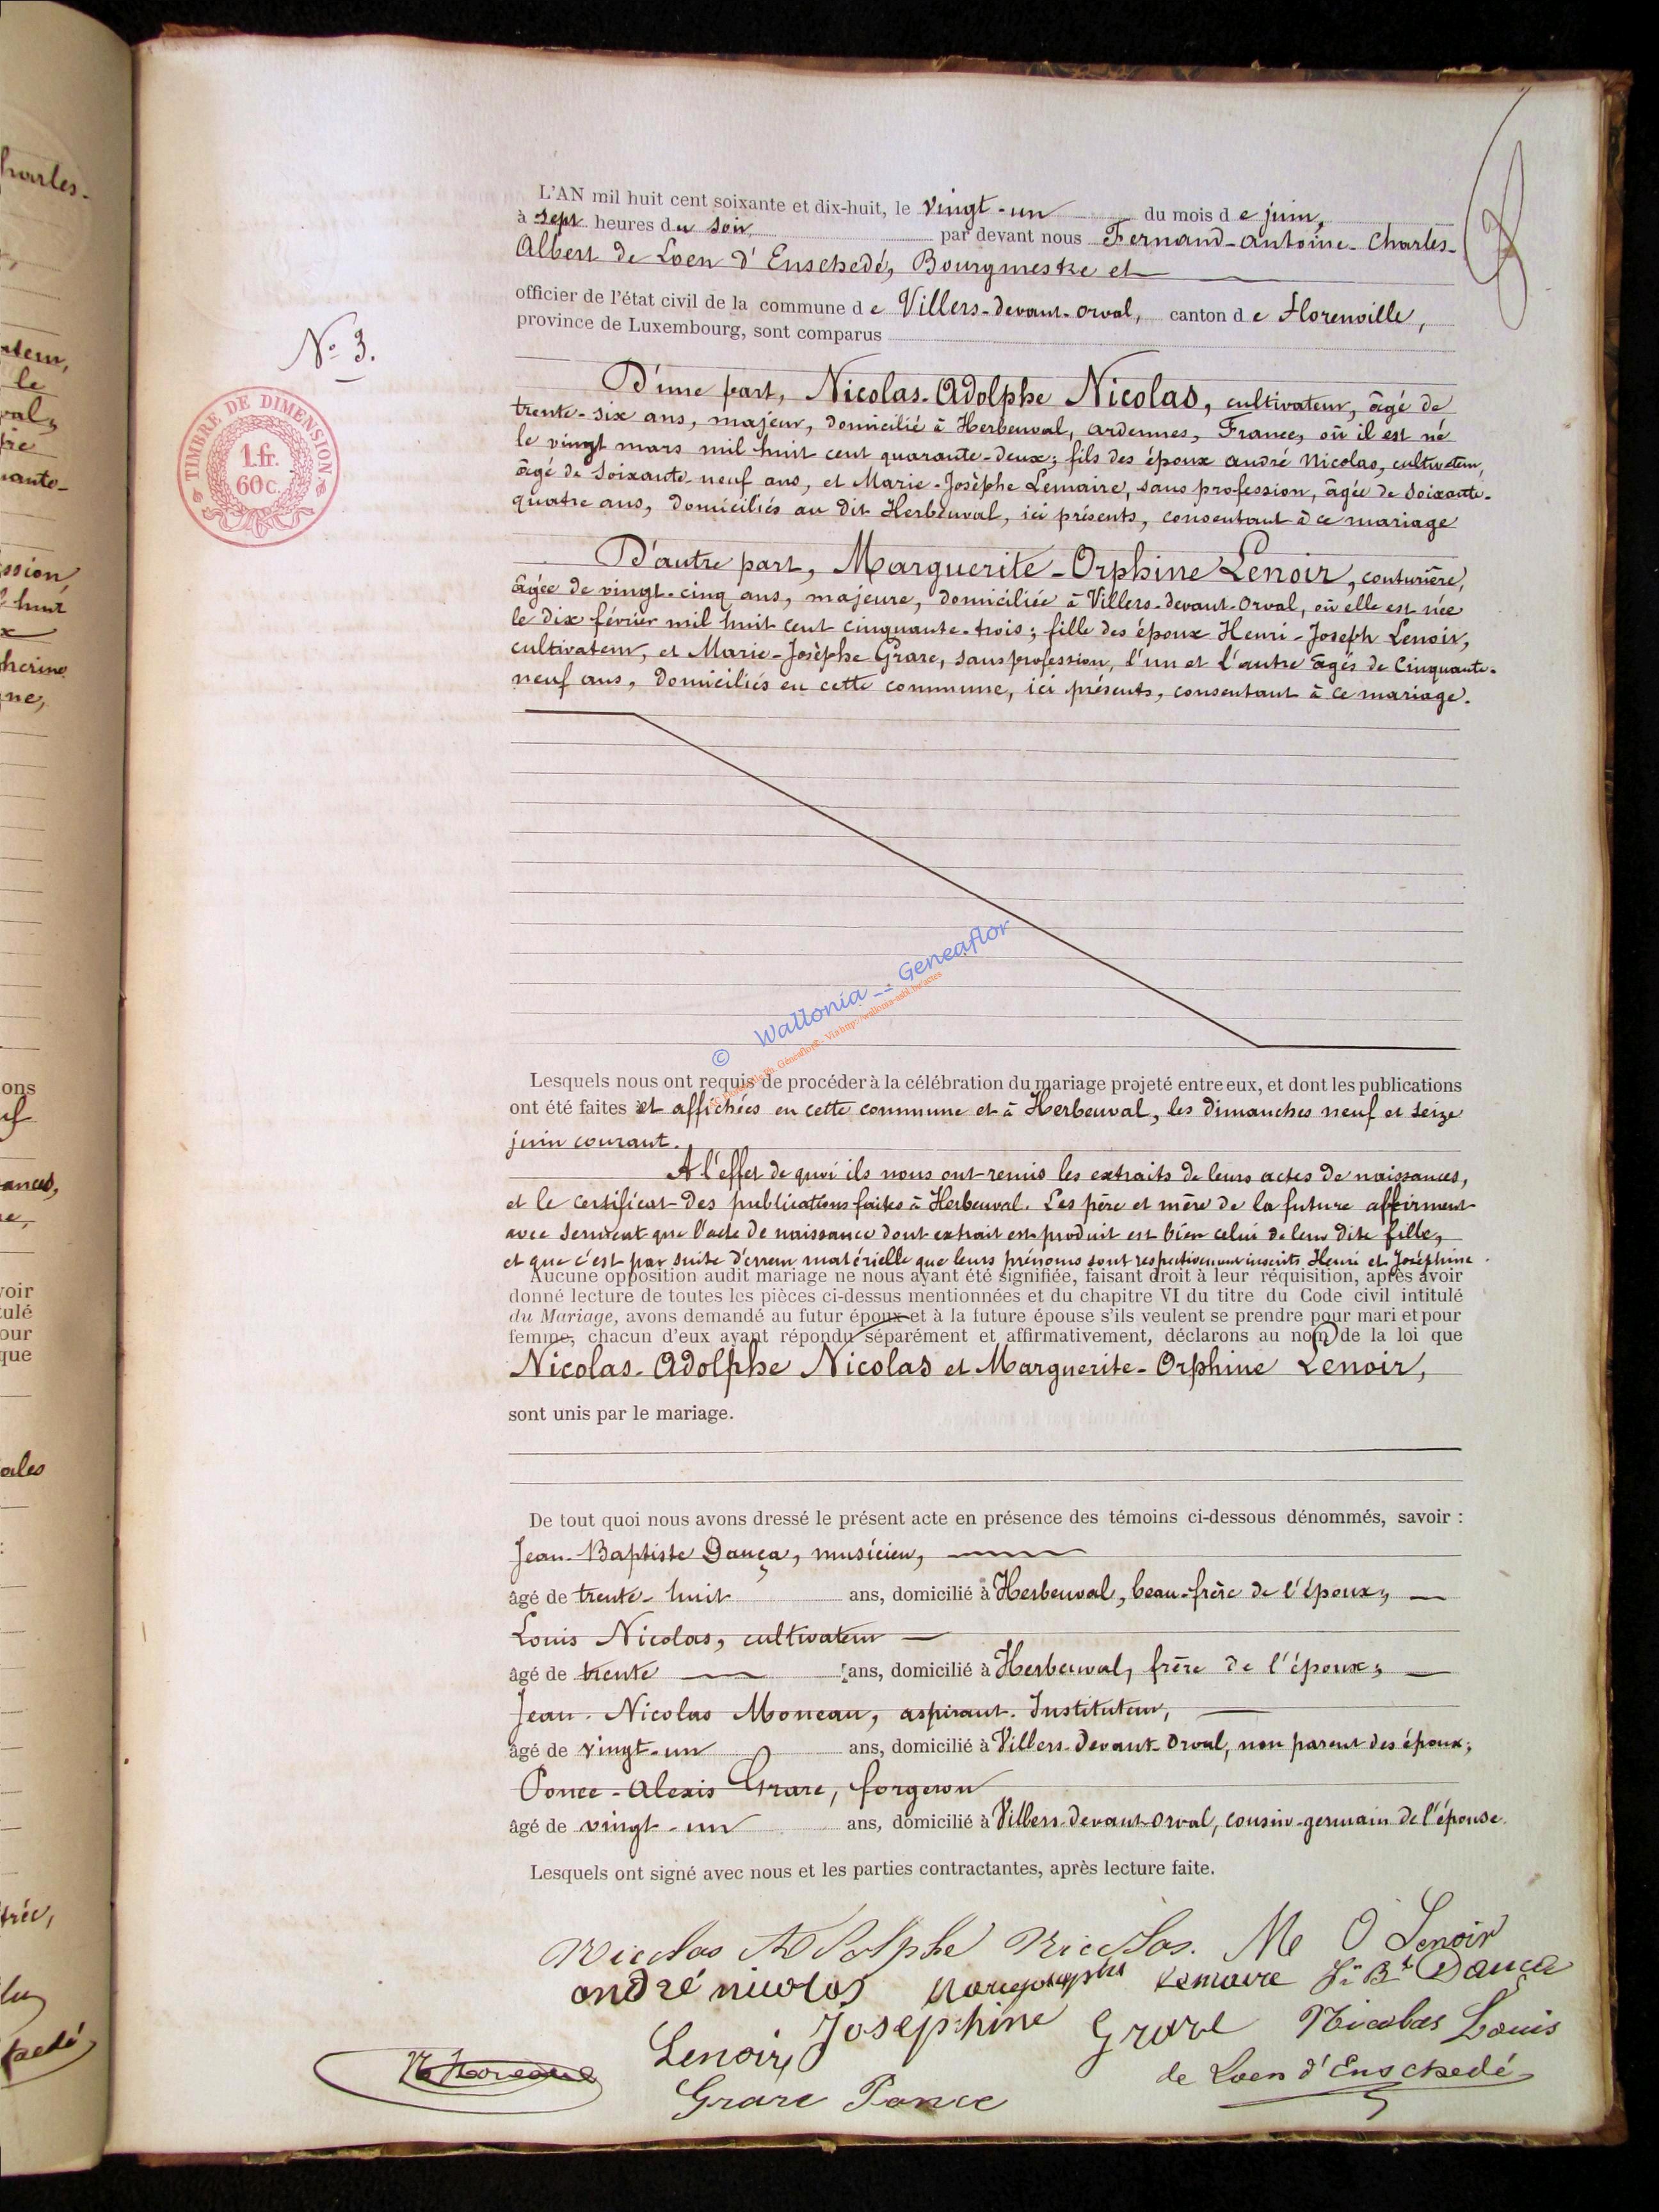 L'AN mil huit cent soixante et dix-huit, le vingt-un du mois de juin,
à sept heures du soir, par devant nous Fernand-Antoine-Charles-
Albert de Loen d'Enschedé, Bourgmestre et
officier de l'état civil de la commune de Villers-devant-Orval, canton de Florenville,
province de Luxembourg, sont comparus
N° 3.
TIMBRE DE DIMENSION
1 fr.
60 c.
D'une part, Nicolas-Adolphe Nicolas, cultivateur, âgé de
trente-six ans, majeur, domicilié à Herbeuval, ardennes, France, où il est né
le vingt mars mil huit cent quarante-deux; fils des époux andré Nicolas, cultivateur,
âgé de soixante-neuf ans, et Marie-Josèphe Lemaire, sans profession, âgée de soixante-
quatre ans, domiciliés au dit Herbeuval, ici présents, consentant à ce mariage
D'autre part, Marguerite-Orphine Lenoir, couturière,
âgée de vingt-cinq ans, majeure, domiciliée à Villers-devant-Orval, où elle est née
le dix février mil huit cent cinquante-trois; fille des époux Henri-Joseph Lenoir,
cultivateur, et Marie-Josèphe Grare, sans profession, l'un et l'autre âgés de Cinquante-
neuf ans, domiciliés en cette commune, ici présents, consentant à ce mariage.
© Wallonia -- Geneaflor
Lesquels nous ont requis de procéder à la célébration du mariage projeté entre eux, et dont les publications
ont été faites et affichées en cette commune et à Herbeuval, les dimanches neuf et seize
juin courant.
A l'effet de quoi ils nous ont remis les extraits de leurs actes de naissances,
et le certificat des publications faites à Herbeuval. Les père et mère de la future affirment
avec serment que l'acte de naissance dont extrait est produit est bien celui de leur dite fille,
et que c'est par suite d'erreur matérielle que leurs prénoms sont respectivement inscrits Henri et Joséphine.
Aucune opposition audit mariage ne nous ayant été signifiée, faisant droit à leur réquisition, après avoir
donné lecture de toutes les pièces ci-dessus mentionnées et du chapitre VI du titre du Code civil intitulé
du Mariage, avons demandé au futur époux et à la future épouse s'ils veulent se prendre pour mari et pour
femme, chacun d'eux ayant répondu séparément et affirmativement, déclarons au nom de la loi que
Nicolas-Adolphe Nicolas et Marguerite-Orphine Lenoir,
sont unis par le mariage.
De tout quoi nous avons dressé le présent acte en présence des témoins ci-dessous dénommés, savoir :
Jean-Baptiste Dança, musicien,
âgé de trente-huit ans, domicilié à Herbeuval, beau-frère de l'époux;
Louis Nicolas, cultivateur
âgé de trente ans, domicilié à Herbeuval, frère de l'époux;
Jean-Nicolas Moneau, aspirant-Instituteur,
âgé de vingt-un ans, domicilié à Villers-devant-Orval, non parent des époux;
Ponce-Alexis Grare, forgeron
âgé de vingt-un ans, domicilié à Villers-devant-Orval, cousin-germain de l'épouse.
Lesquels ont signé avec nous et les parties contractantes, après lecture faite.
Nicolas Adolphe Nicolas. M O Lenoir
andré nicolas Lemaire Jn Bte Dança
Lenoir Josephine Grare Nicolas Louis
de Loen d'Enschedé
Grare Ponce